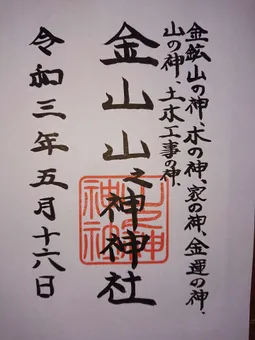 金鉱山の神、水の神、家の神、金運の神、
山の神、土木工事の神、
金山山之神神社
令和三年五月十六日
山之神
神社